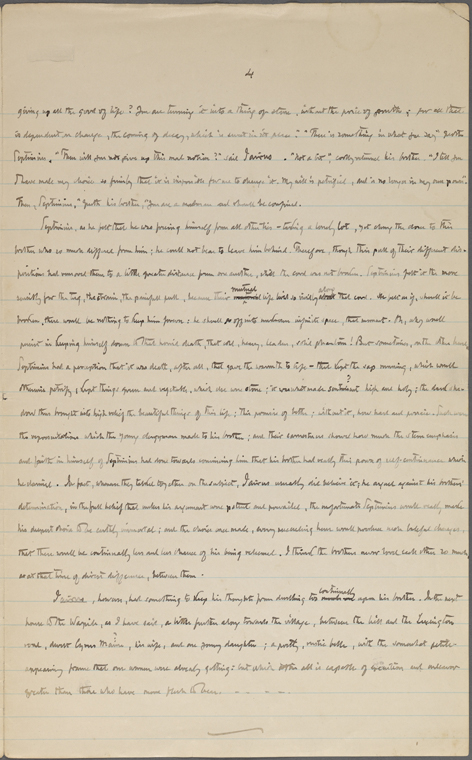 4
giving up all the good of life? You are turning it into a thing of stone, without the poise of youth; for all that
is dependent on change, the coming of decay, which is secret in its place." "There is something in what you say," quoth
Septimius. "Then will you not give up this mad notion?" said . "Not a bit", coolly returned his brother. "I tell you
I have made my choice so firmly that it is impossible for me to change it. My will is petrified, and is no longer in my own power."
Then, Septimius," quoth his brother, "You are a madman and should be confined.
Septimius, as he felt that he was freeing himself from all other ties - taking a lonely lot, yet clung the closer to this
brother who so much differed from him; he could not bear to leave him behind. Therefore, though this path of their different dis-
positions had removed them to a little greater distance from one another, still the cord was not broken. Septimius felt it the more
sensibly for the tug, the strain, the painful pull, because their mutual life still so vividly along that cord. And yet as if, should it be
broken, there would be nothing to keep him forever; he should go off into unknown infinite space, that moment. Oh, why would
persist in keeping himself down to that horrid death, that cold, heavy, leaden, cold phantom! But sometimes, on the other hand,
Septimius had a perception that it was death, after all, that gave the warmth to life - that kept the sap moving, which would
otherwise petrify, kept things green and vegetable, which else were stone; it was what made sentiment high and holy; the dark sha-
dow thus brought into high relief the beautiful things of this life; this promise of better; without it, how hard and prosaic. Such were
the representations which the young clergyman made to his brother; and their earnestness showed how much the stern emphasis
and faith in himself of Septimius had done towards convincing him that his brother had really this power of self-continuance which
he claimed. In fact, whenever they talked together on the subject, usually did believe it; he argued against his brothers'
determination, in the full belief that unless his argument were potent and prevailed, the unfortunate Septimius would really make
his desperate choice to be earthly immortal; and the choice once made, every succeeding hour would produce more baleful changes,
that there would be continually less and less chance of his being redeemed. I think the brothers never loved each other so much
as at that time of direct difference, between them.
, however, had something to keep his thoughts from dwelling too continually upon his brother. In the next
house to the Wayside, as I have said, a little farther along towards the village, between the hill and the Lexington
road, dwelt Cyrus , his wife, and one young daughter; a pretty, little, with the somewhat petite-
appearing frame that our women were already getting: but which after all is capable of exertion and endurance
greater than those who have more flesh to bear. - - - -